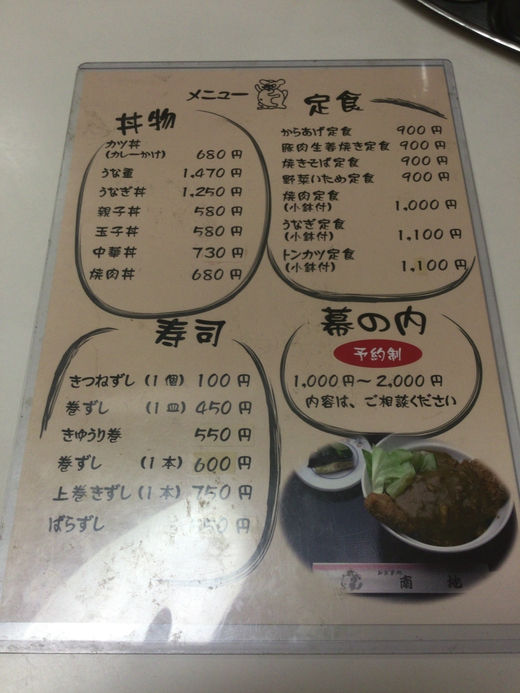 メニュー
丼物
カツ丼
(カレーかけ) 680円
うな重 1,470円
うなぎ丼 1,250円
親子丼 580円
玉子丼 580円
中華丼 730円
焼肉丼 680円
定食
からあげ定食 900円
豚肉生姜焼き定食 900円
焼きそば定食 900円
野菜いため定食 900円
焼肉定食
(小鉢付) 1,000円
うなぎ定食
(小鉢付) 1,100円
トンカツ定食
(小鉢付) 1,100円
寿司
きつねずし (1個) 100円
巻ずし (1皿) 450円
きゅうり巻 550円
巻ずし (1本) 600円
上巻きずし (1本) 750円
ばらずし 50円
幕の内
予約制
1,000円〜2,000円
内容は、ご相談ください
南地